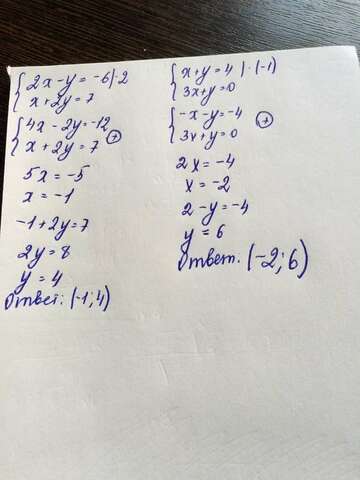 2x-y=-6|·2
x+2y=7
4x-2y=-12
x+2y=7 (+)
5x=-5
x=-1
-1+2y=7
2y=8
y=4
Ответ: (-1;4)
x+y=4 |·(-1)
3x+y=0
-x-y=-4
3x+y=0 (+)
2x=-4
x=-2
2-y=-4
y=6
Ответ. (-2;6)